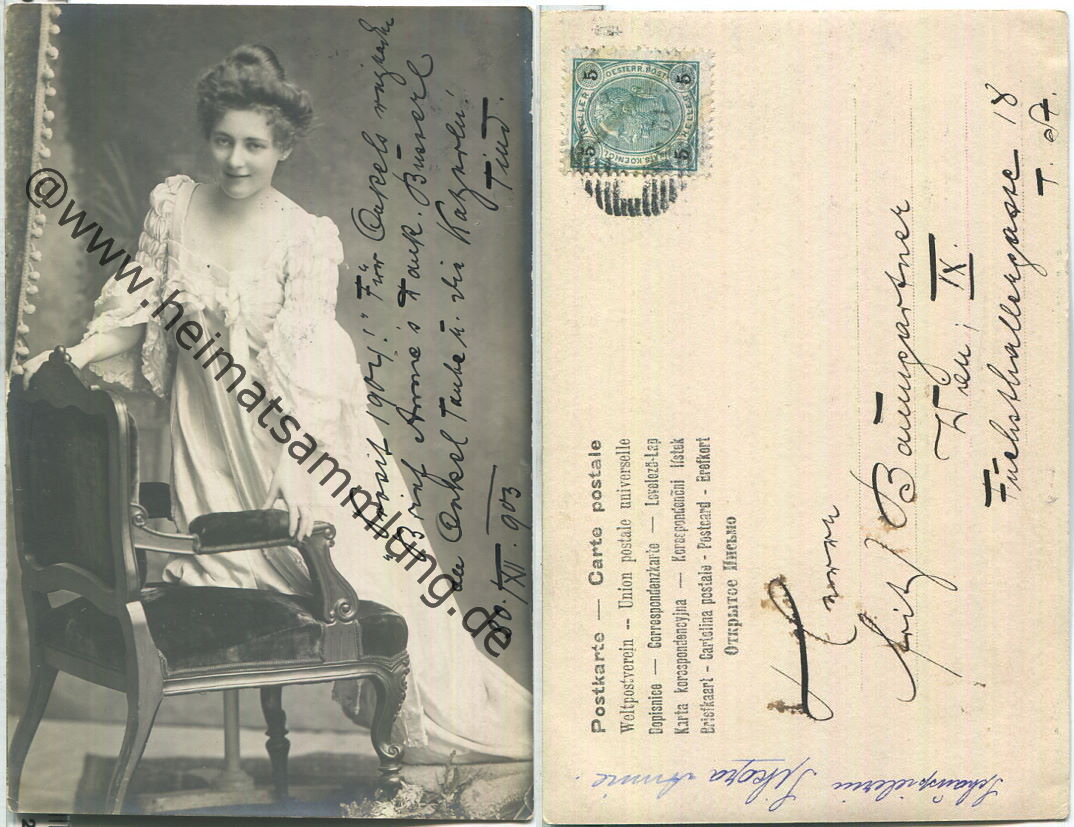 "Prosit 1904!" Für Onkels
Brief Anna's Dank. Busserl
an Onkel Taube u. die Katzerln!
30./XII. 903
@www.heimatsammlung.de
5 5
OESTERR. POST
5 5
Postkarte — Carte postale
Weltpostverein — Union postale universelle
Dopisnice — Correspondenzkarte — Levelező-Lap
Karta korespondencyjna — Korespondenční lístek
Briefkaart - Cartolina postale - Postcard - Brefkort
Открытое Письмо
Herrn
Fritz Baumgartner
Wien, IX.
Fuchsthallergasse 18
T. 
Schauspielerin Annie